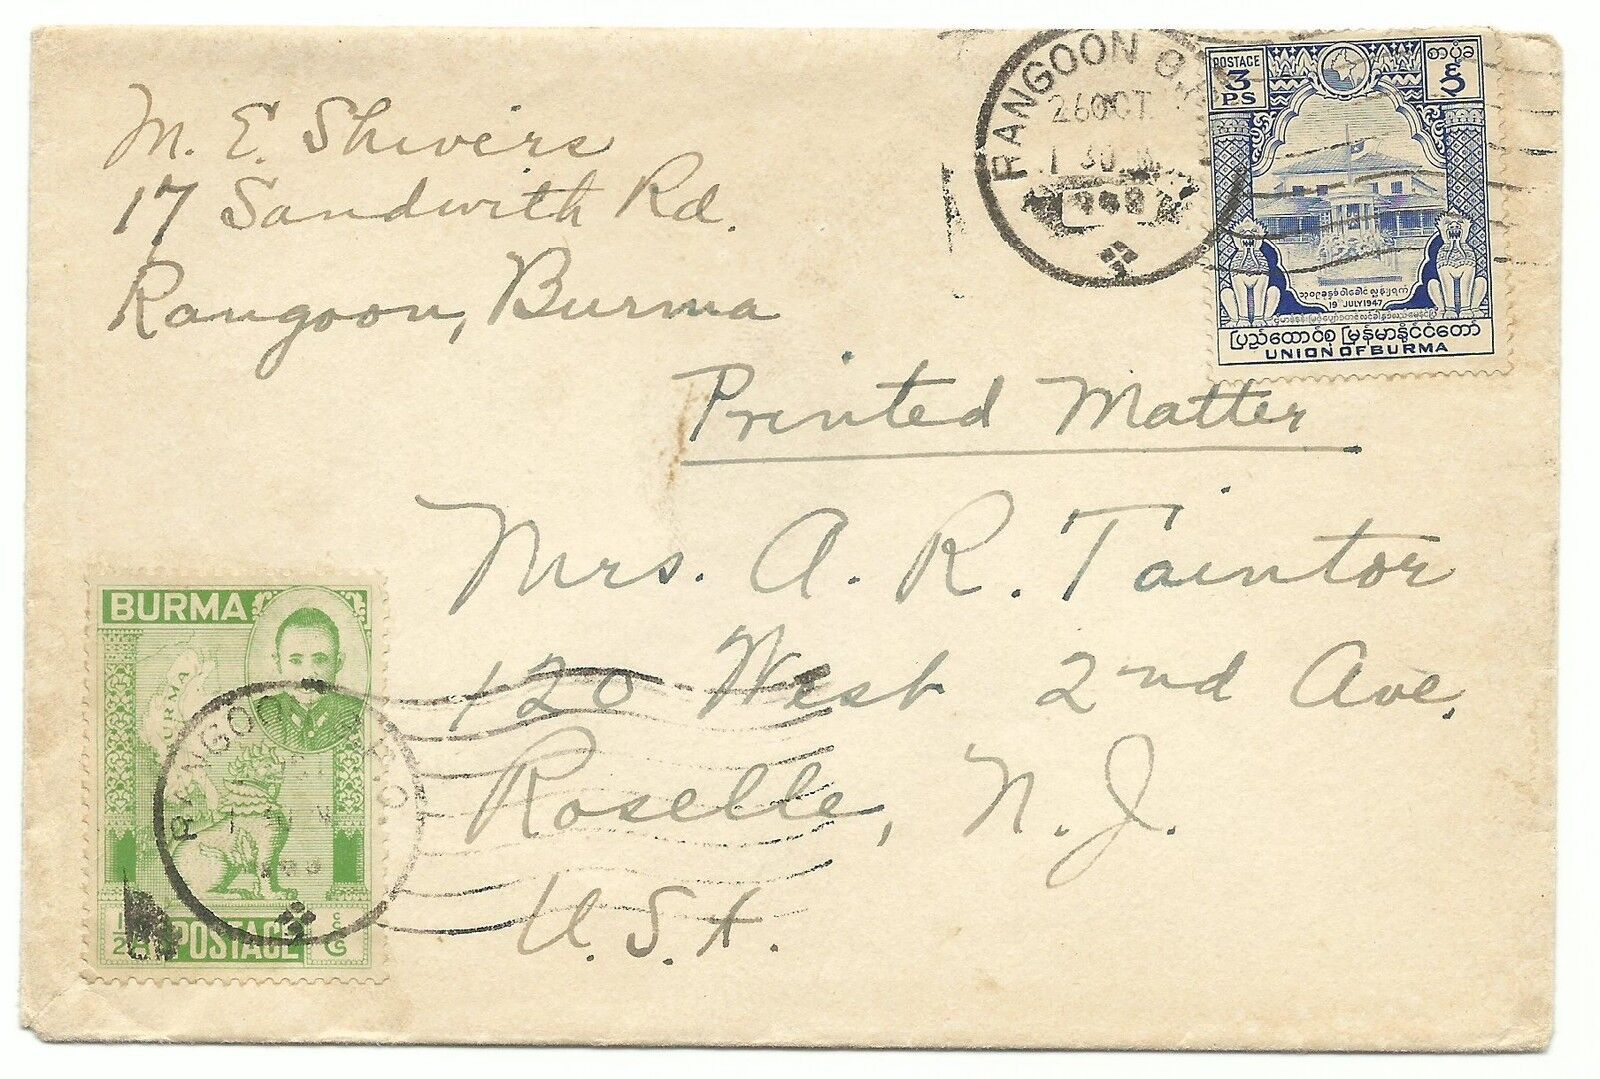 M. E. Shivers
17 Sandwith Rd.
Rangoon, Burma
RANGOON
26 OCT
1 30
POSTAGE
3
PS
19 JULY 1947
ပြည်ထောင်စု မြန်မာနိုင်ငံတော်
UNION OF BURMA
Printed Matter
Mrs. A. R. Taintor
120 West 2nd Ave.
Roselle, N. J.
U. S. A.
BURMA
BURMA
POSTAGE